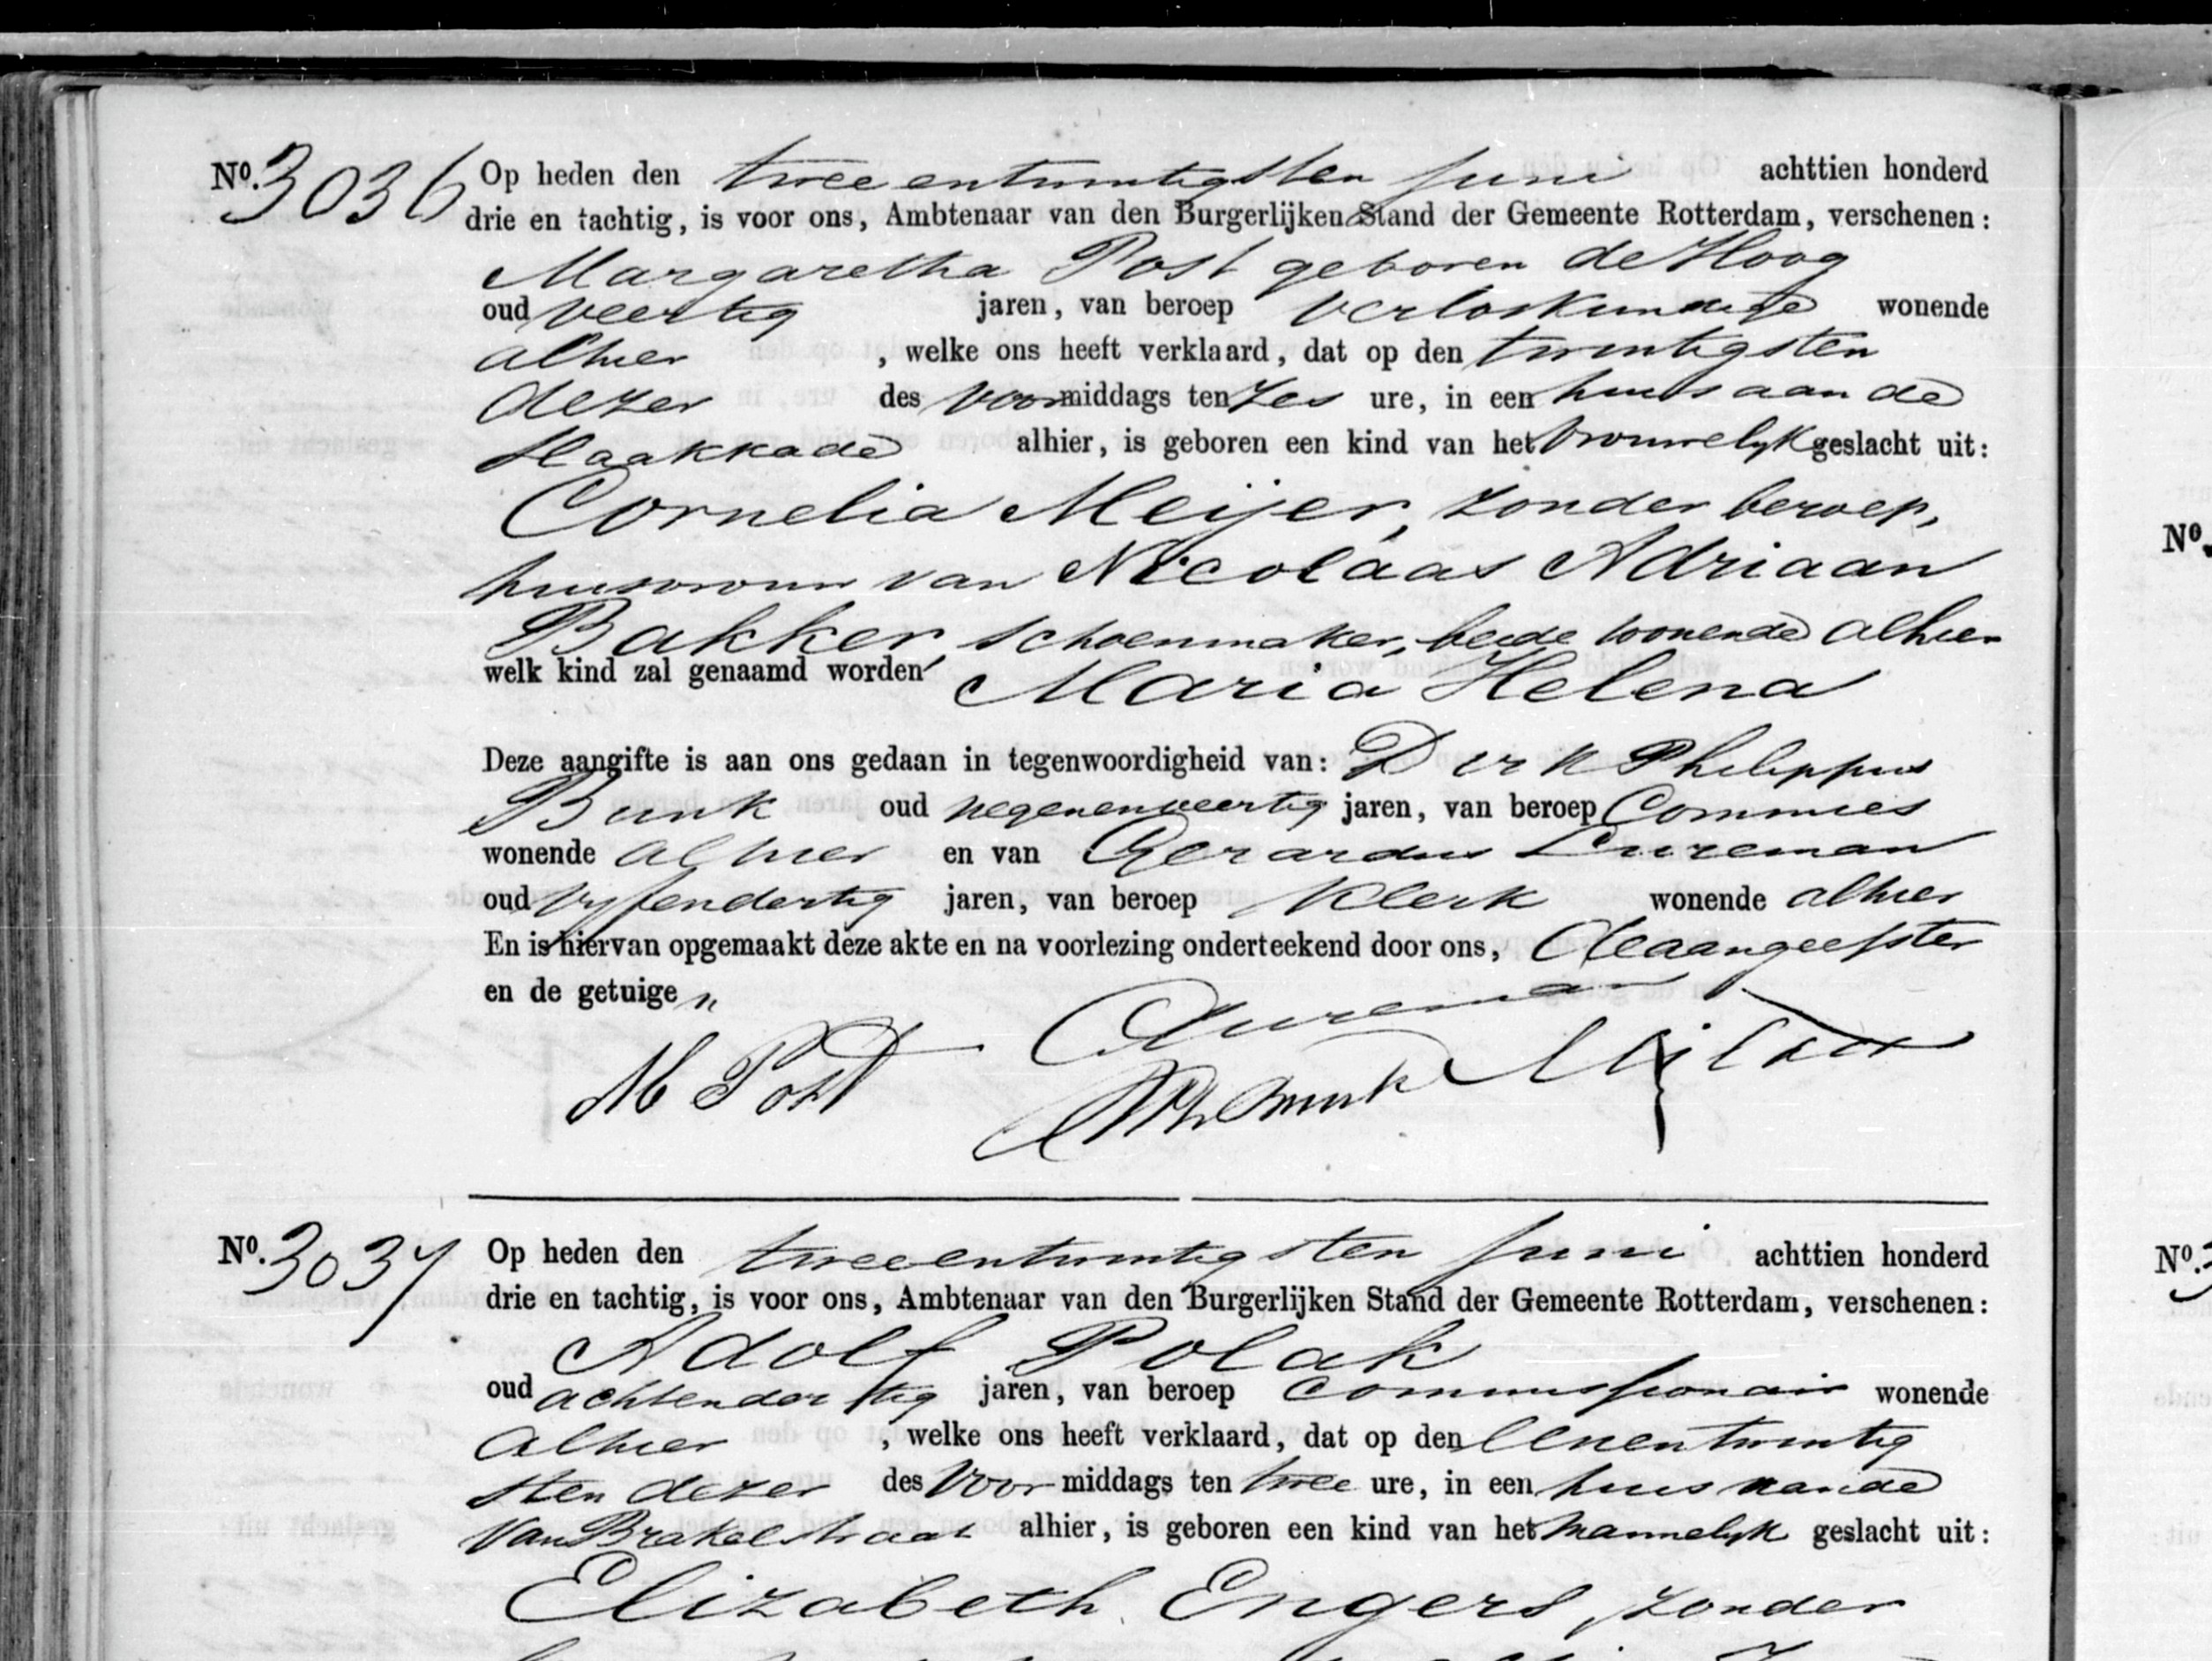 No. 3036 Op heden den twee en twintigsten Juni achttien honderd
drie en tachtig, is voor ons, Ambtenaar van den Burgerlijken Stand der Gemeente Rotterdam, verschenen:
Margaretha Post geboren de Hoog
oud veertig jaren, van beroep verloskundige wonende
alhier , welke ons heeft verklaard, dat op den twintigsten
dezer des voormiddags ten zes ure, in een huis aan de
Haakkade alhier, is geboren een kind van het vrouwelyk geslacht uit:
Cornelia Meijer, zonder beroep,
huisvrouw van Nicolaas Adriaan
Bakker, schoenmaker, beide wonende alhier
welk kind zal genaamd worden Maria Helena
Deze aangifte is aan ons gedaan in tegenwoordigheid van: Dirk Philippus
Bunk oud negenenveertig jaren, van beroep Commies
wonende alhier en van Gerardus Bureman
oud vyfendertig jaren, van beroep Klerk wonende alhier
En is hiervan opgemaakt deze akte en na voorlezing onderteekend door ons, de aangeefster
en de getuigen
M Post
No. 3037 Op heden den tweeentwintigsten Juni achttien honderd
drie en tachtig, is voor ons, Ambtenaar van den Burgerlijken Stand der Gemeente Rotterdam, verschenen:
Adolf Polak
oud achtendertig jaren, van beroep Commissionair wonende
alhier , welke ons heeft verklaard, dat op den eenentwintig
sten dezer des voormiddags ten twee ure, in een huis aande
Van Brakelstraat alhier, is geboren een kind van het mannelyk geslacht uit:
Elizabeth Engers, zonder
No.
No.